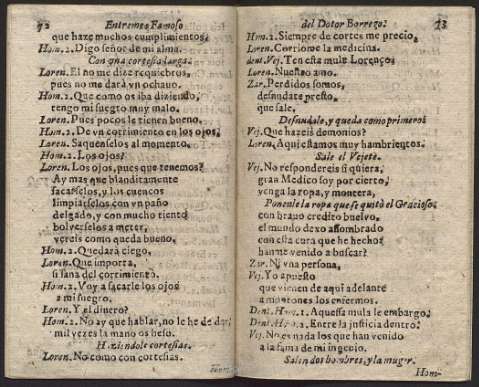 72 Entremes Famoso
que hazé muchos cumplimientos.
Hom.2. Digo señor de mi alma.
Con vna cortesia larga.
Loren. El no me dize requiebros,
pues no me dará vn ochauo.
Hom.2. Que como os iba diziendo,
tengo mi suegro muy malo.
Loren. Pues pocos le tienen bueno.
Hom.2. De vn corrimiento en los ojos,
Loren. Saquenselos al momento.
Hom.2. Los ojos?
Loren. Los ojos, pues que tenemos?
Ay mas que blanditamente
sacarselos, y los cuencos
limpiarselos con vn paño
delgado, y con mucho tiento
boluerselos a meter,
vereis como queda bueno.
Hom.2. Quedará ciego.
Loren. Que importa,
si sana del corrimiento.
Hom.2. Voy a sacarle los ojos
a mi suegro.
Loren. Y el dinero?
Hom.2. No ay que hablar, no le he de dar,
mil vezes la mano os beso.
Haziendole cortesias.
Loren. No como con cortesias.
del Dotor Borrego. 73
Hom.2. Siempre de cortes me precio.
Loren. Corriome la medicina.
dent. Vej. Ten essa mula Lorenço.
Loren. Nuestro amo.
Zar. Perdidos somos,
desnudate presto,
que sale.
Desnudale, y queda como primero.
Vej. Que hazeis demonios?
Loren. Aqui estamos muy hambrientos.
Sale el Vejete.
Vej. No respondereis si quiera,
gran Medico soy por cierto,
venga la ropa, y montera,
Ponenle la ropa que se quitò el Gracioso.
con brauo credito bueluo,
el mundo dexo assombrado
con esta cura que he hecho;
hanme venido a buscar?
Zar. Ni vna persona.
Vej. Yo apuesto
que vienen de aqui adelante
a montones los enfermos.
Dent. Hom.1. Aquessa mula le embargo.
Dent. Hom.2. Entre la justicia dentro.
Vej. No es nada los que han venido
a la fama de mi ingenio.
Salen dos hombres, y la muger.
Hom-